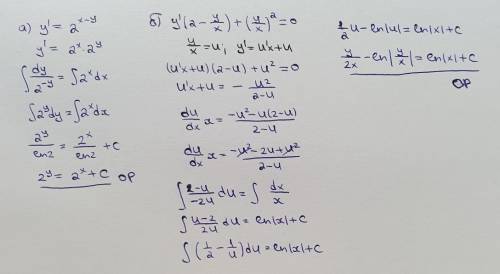 а) y' = 2^(x-y)
y' = 2^x · 2^y
∫ dy/2^(-y) = ∫ 2^x dx
∫ 2^y dy = ∫ 2^x dx
2^y/ln2 = 2^x/ln2 + C
2^y = 2^x + C ОР
б) y'(2 - y/x) + (y/x)^2 = 0
y/x = u; y' = u'x + u
(u'x + u)(2 - u) + u^2 = 0
u'x + u = - u^2/(2-u)
du/dx x = (-u^2 - u(2-u))/(2-u)
du/dx x = (-u^2 - 2u + u^2)/(2-u)
∫ (2-u)/(-2u) du = ∫ dx/x
∫ (u-2)/(2u) du = ln|x| + C
∫ (1/2 - 1/u) du = ln|x| + C
1/2 u - ln|u| = ln|x| + C
y/2x - ln|y/x| = ln|x| + C
ОР